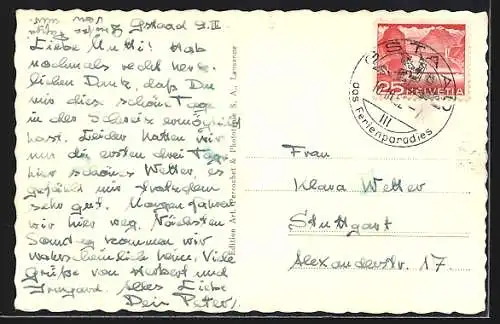 Gstaad 9.III.
Liebe Mutti! Hab
nochmals recht herz-
lichen Dank, daß Du
mir diese schönen Tage
in der Schweiz ermöglicht
hast. Leider hatten wir
nur die ersten drei Tage
hier schönes Wetter, es
gefällt mir trotzdem
sehr gut. Morgen fahren
wir hier weg. Nächsten
Samstag kommen wir
wahrscheinlich heim. Viele
Grüße von Herbert und
Irmgard. Alles Liebe
Dein Peter.
Edition Art. Perrochet & Phototypie S. A., Lausanne
GSTAAD
das Ferienparadies
III
25 HELVETIA
Frau
Klara Wetter
Stuttgart
Alexanderstr. 17.